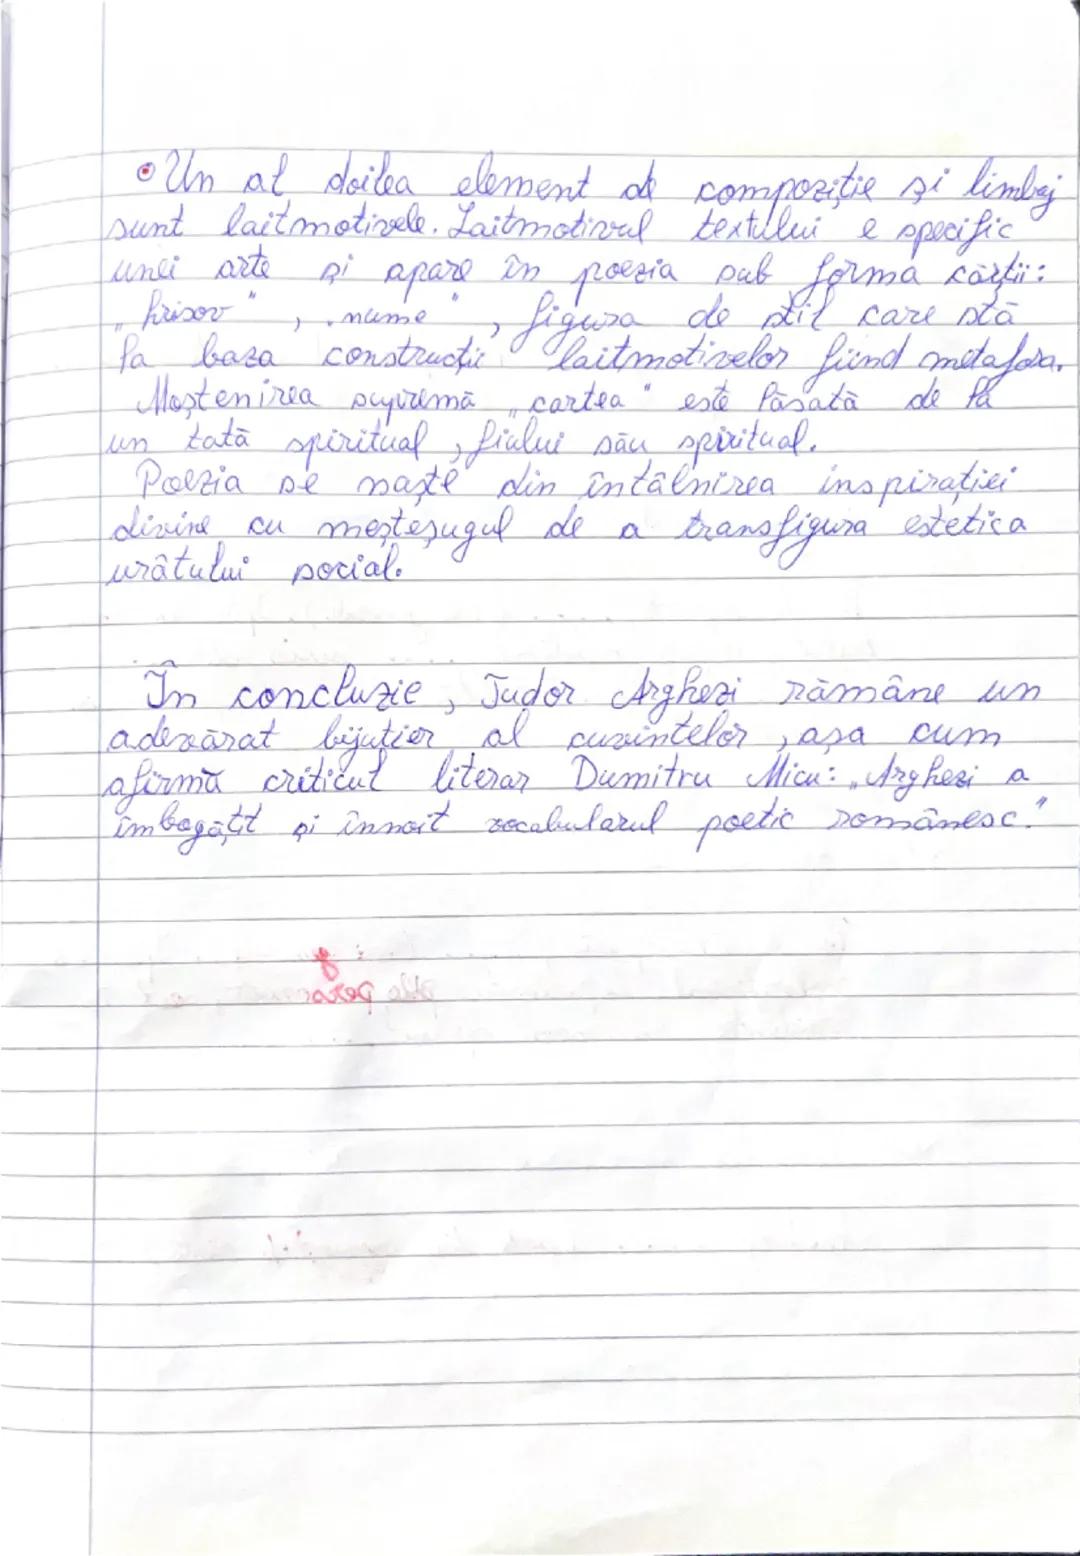 Un al doilea element de compoziție și limbaj
sunt laitmotivele. Laitmotivul textului e specific
unei arte și apare în poezia sub forma cărții:
„hrisov", „nume", figura de stil care stă
la baza construcții laitmotivelor fiind metafora.
Moștenirea supremă „cartea" este lăsată de la
un tată spiritual, fiului său spiritual.
Poezia se naște din întâlnirea inspirației
divine cu meșteșugul de a transfigura estetica
urâtului social.
În concluzie, Tudor Arghezi rămâne un
adevărat bijutier al cuvintelor, așa cum
afirmă criticul literar Dumitru Micu: „Arghezi a
îmbogățit și înnoit vocabularul poetic românesc."